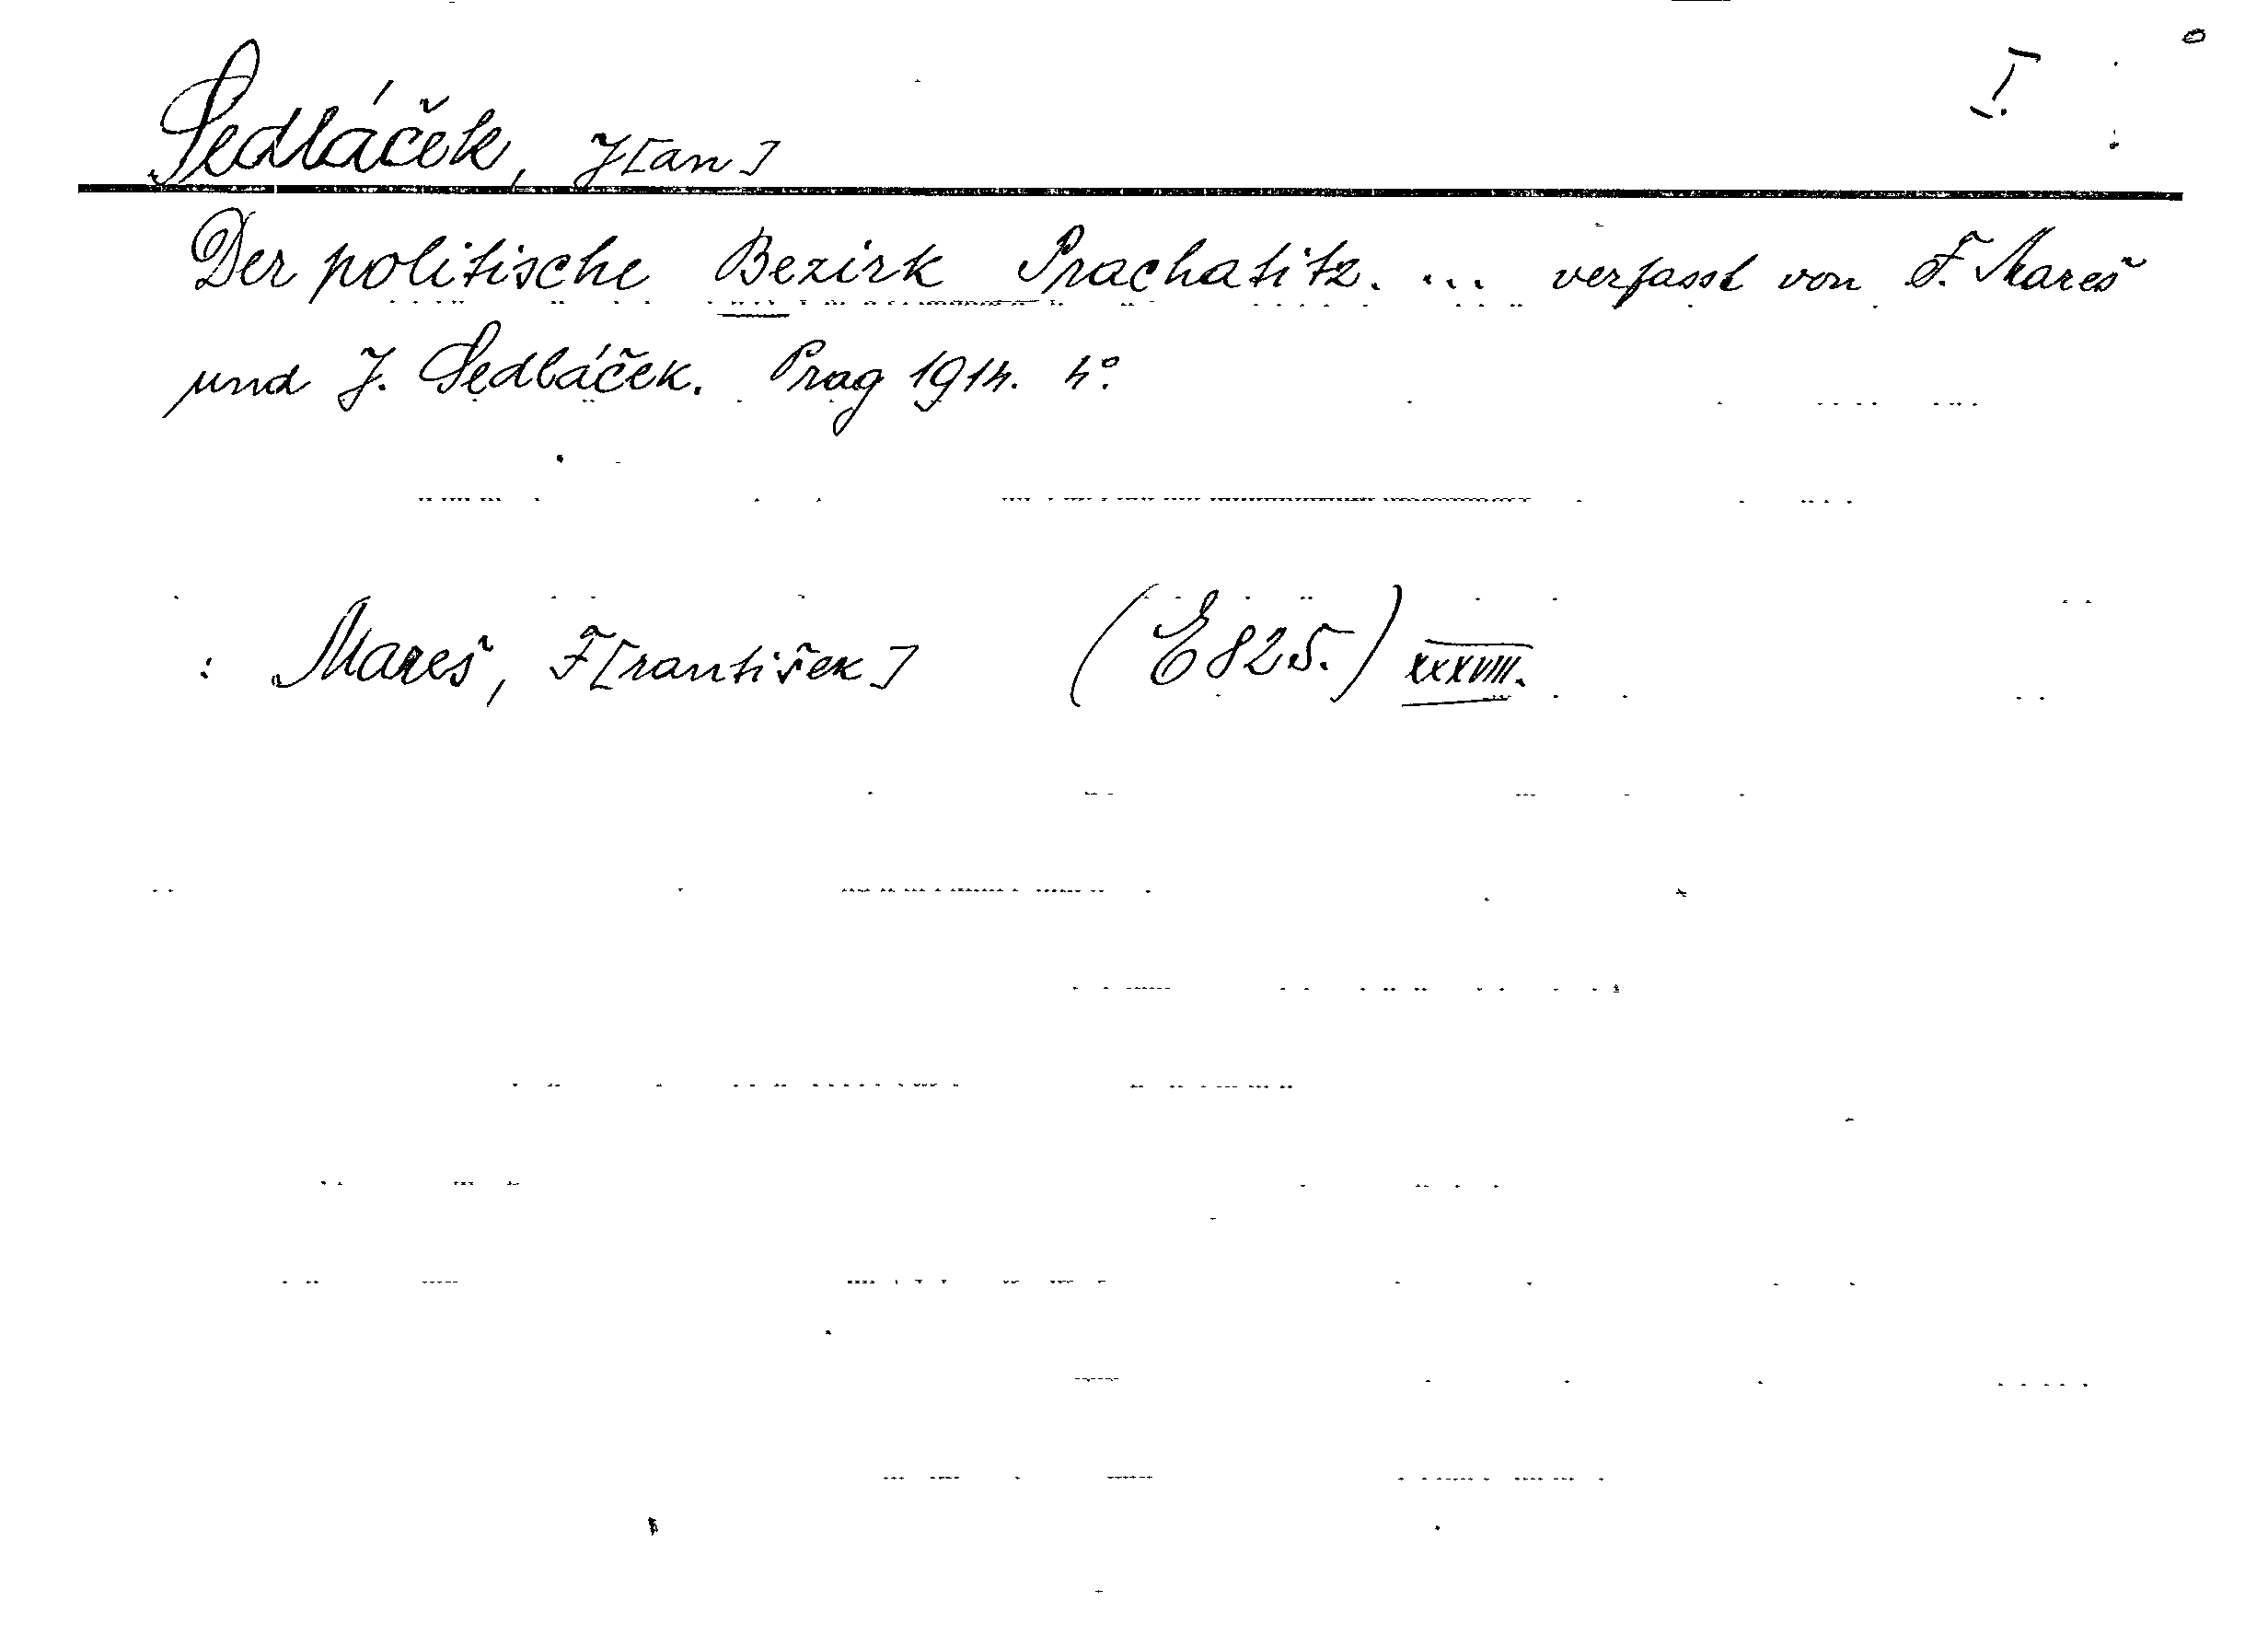 Sedláček, J[an] I.
Der politische Bezirk Prachatitz. ... verfasst von F. Mareš
und J. Sedláček. Prag 1914. 4°.
: Mareš, F[rantišek] (E 825.) XXXVIII.